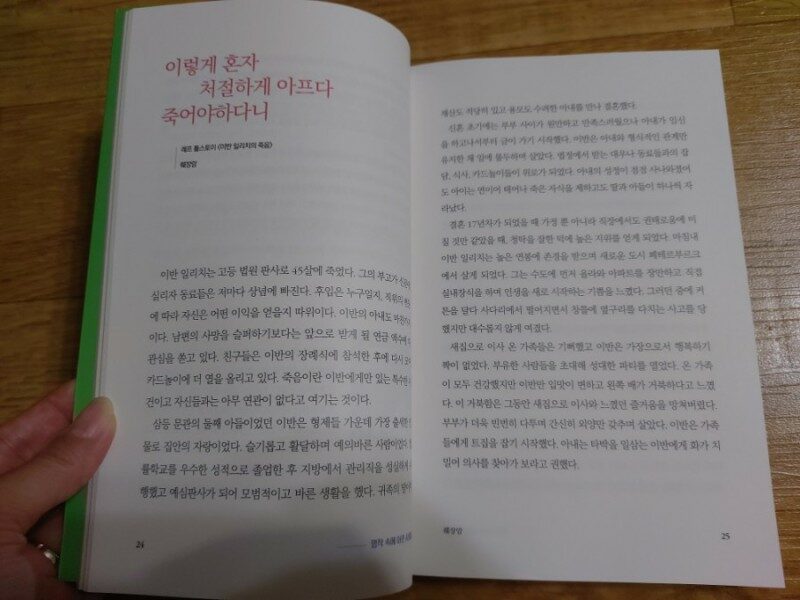 이렇게 혼자
처절하게 아프다
죽어야하다니
레프 톨스토이 《이반 일리치의 죽음》
췌장암
이반 일리치는 고등 법원 판사로 45살에 죽었다. 그의 부고가
실리자 동료들은 저마다 상념에 빠진다. 후임은 누구일지, 직위의
에 따라 자신은 어떤 이익을 얻을지 따위이다. 이반의 아내도
이다. 남편의 사망을 슬퍼하기보다는 앞으로 받게 될 연금 액수에
관심을 쏟고 있다. 친구들은 이반의 장례식에 참석한 후에 다시
카드놀이에 더 열을 올리고 있다. 죽음이란 이반에게만 있는 특수한
건이고 자신들과는 아무 연관이 없다고 여기는 것이다.
삼등 문관의 둘째 아들이었던 이반은 형제들 가운데 가장 출세한
물로 집안의 자랑이었다. 슬기롭고 활달하며 예의바른 사람이었다.
률학교를 우수한 성적으로 졸업한 후 지방에서 관리직을 성실하게
행했고 예심판사가 되어 모범적이고 바른 생활을 했다. 귀족의
24
명작 속에
재산도 적당히 있고 용모도 수려한 아내를 만나 결혼했다.
신혼 초기에는 부부 사이가 원만하고 만족스러웠으나 아내가 임신
을 하고나서부터 금이 가기 시작했다. 이반은 아내와 형식적인 관계만
유지한 채 일에 몰두하며 살았다. 법정에서 받는 대우나 동료들과의 잡
담, 식사, 카드놀이들이 위로가 되었다. 아내의 성정이 점점 사나와졌어
도 아이는 연이어 태어나 죽은 자식을 제하고도 딸과 아들이 하나씩 자
라났다.
결혼 17년차가 되었을 때 가정 뿐 아니라 직장에서도 권태로움에 미
칠 것만 같았을 때, 청탁을 잘한 덕에 높은 지위를 얻게 되었다. 마침내
이반 일리치는 높은 연봉에 존경을 받으며 새로운 도시 페테르부르크
에서 살게 되었다. 그는 수도에 먼저 올라와 아파트를 장만하고 직접
실내장식을 하며 인생을 새로 시작하는 기쁨을 느꼈다. 그러던 중에 커
튼을 달다 사다리에서 떨어지면서 창틀에 옆구리를 다치는 사고를 당
했지만 대수롭지 않게 여겼다.
새집으로 이사 온 가족들은 기뻐했고 이반은 가장으로서 행복하기
짝이 없었다. 부유한 사람들을 초대해 성대한 파티를 열었다. 온 가족
이 모두 건강했지만 이반만 입맛이 변하고 왼쪽 배가 거북하다고 느꼈
다. 이 거북함은 그동안 새집으로 이사와 느꼈던 즐거움을 망쳐버렸다.
부부가 더욱 빈번히 다투며 간신히 외양만 갖추며 살았다. 이반은 가족
들에게 트집을 잡기 시작했다. 아내는 타박을 일삼는 이반에게 화가 치
밀어 의사를 찾아가 보라고 권했다.
췌장암
25